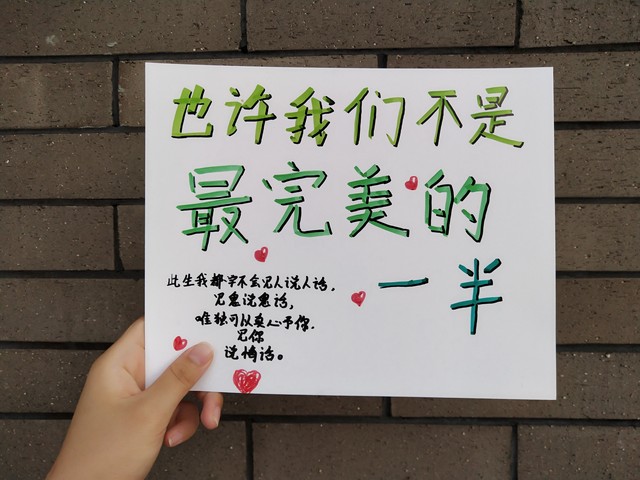 也许我们不是
最完美的
一半
此生我都学不会见人说人话,
见鬼说鬼话,
唯独可以真心予你.
见你
说情话。